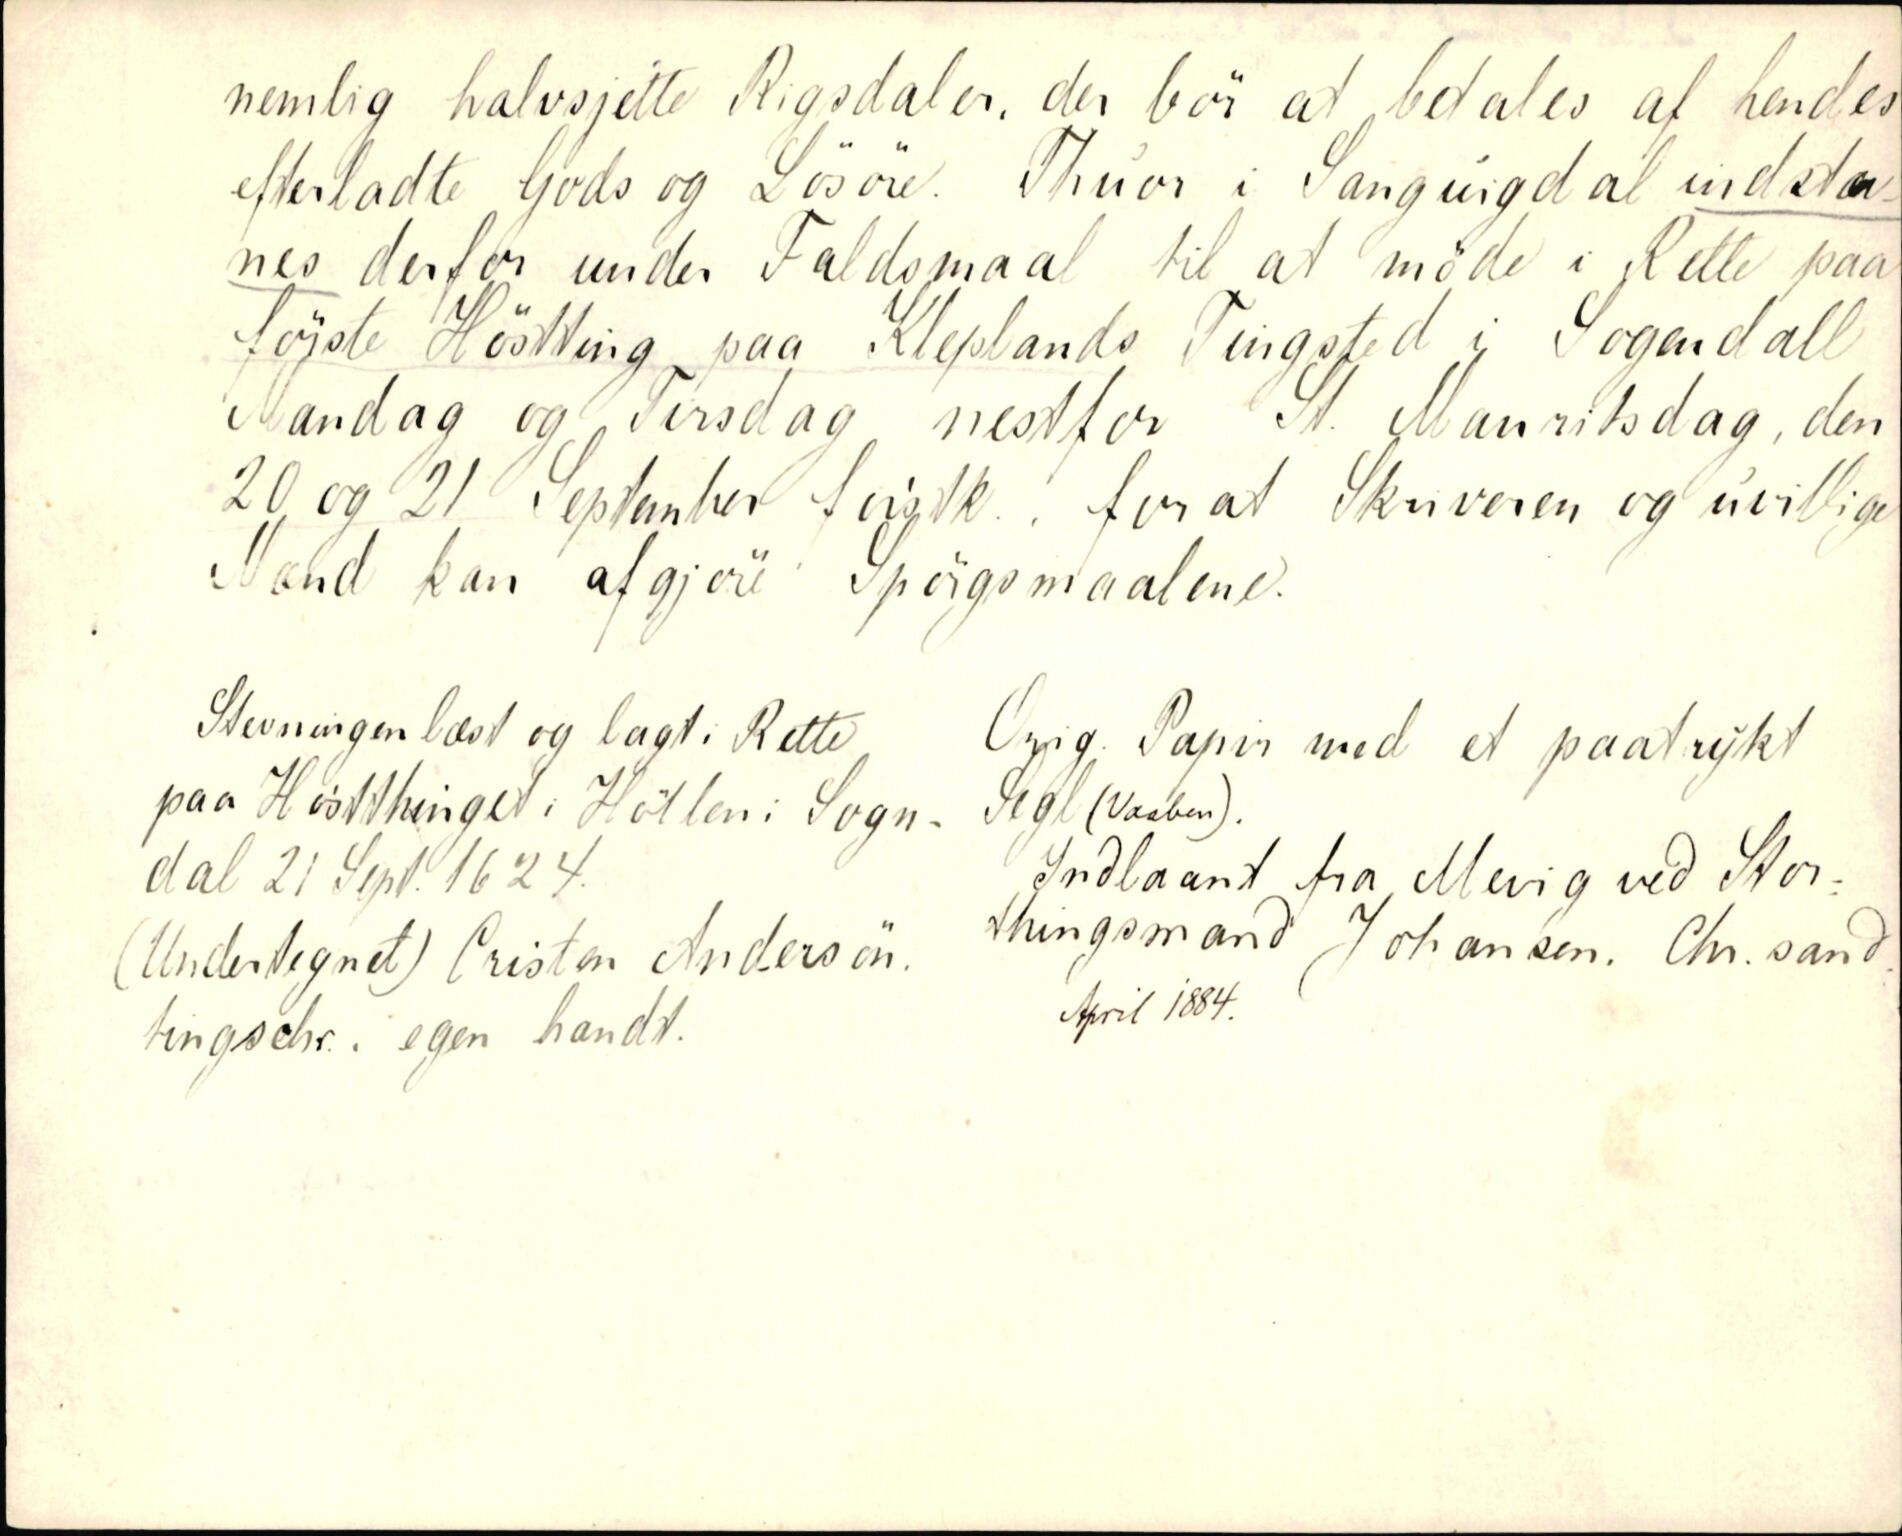 nemlig halvsjette Rigsdaler, der bör at betales af hendes
efterladte Gods og Lösöre. Thuor i Sanguigdal indstæv-
nes derfor under Faldsmaal til at möde i Rette paa
förste Höstting paa Kleplands Tingsted i Sogendall
Mandag og Tirsdag nestfor St. Mauritsdag, den
20 og 21 September förstk., for at Skriveren og uvillige
Mænd kan afgjöre Spörgsmaalene.
Stevningen læst og lagt i Rette
paa Höstthinget i Hölleni Sogn-
dal 21 Sept. 1624.
(Undertegnet) Cristen Andersön.
tingschr. egen handt.
Orig. Papir med et paatrykt
Segl (Vaaben).
Indlaant fra Mevig ved Stor-
thingsmand Johansen. Chr.sand.
April 1884.